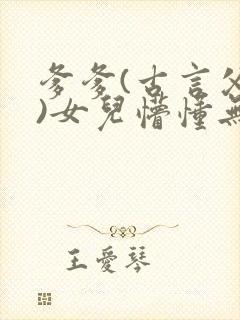 爹爹(古言父
)女兒懵懂無
王愛琴